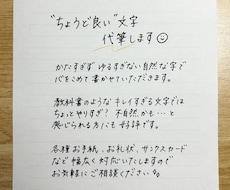 "ちょうど良い"文字
代筆します☺
かたすぎず ゆるすぎない自然な字で
心をこめて書かせていただきます。
教科書のような キレイすぎる文字では
ちょっとやりすぎ？ 不自然かも…と
感じられる方にも 好評です。
各種お手紙、お礼状、サンクスカード
など 幅広く 対応いたしますので
お気軽に ご相談ください。